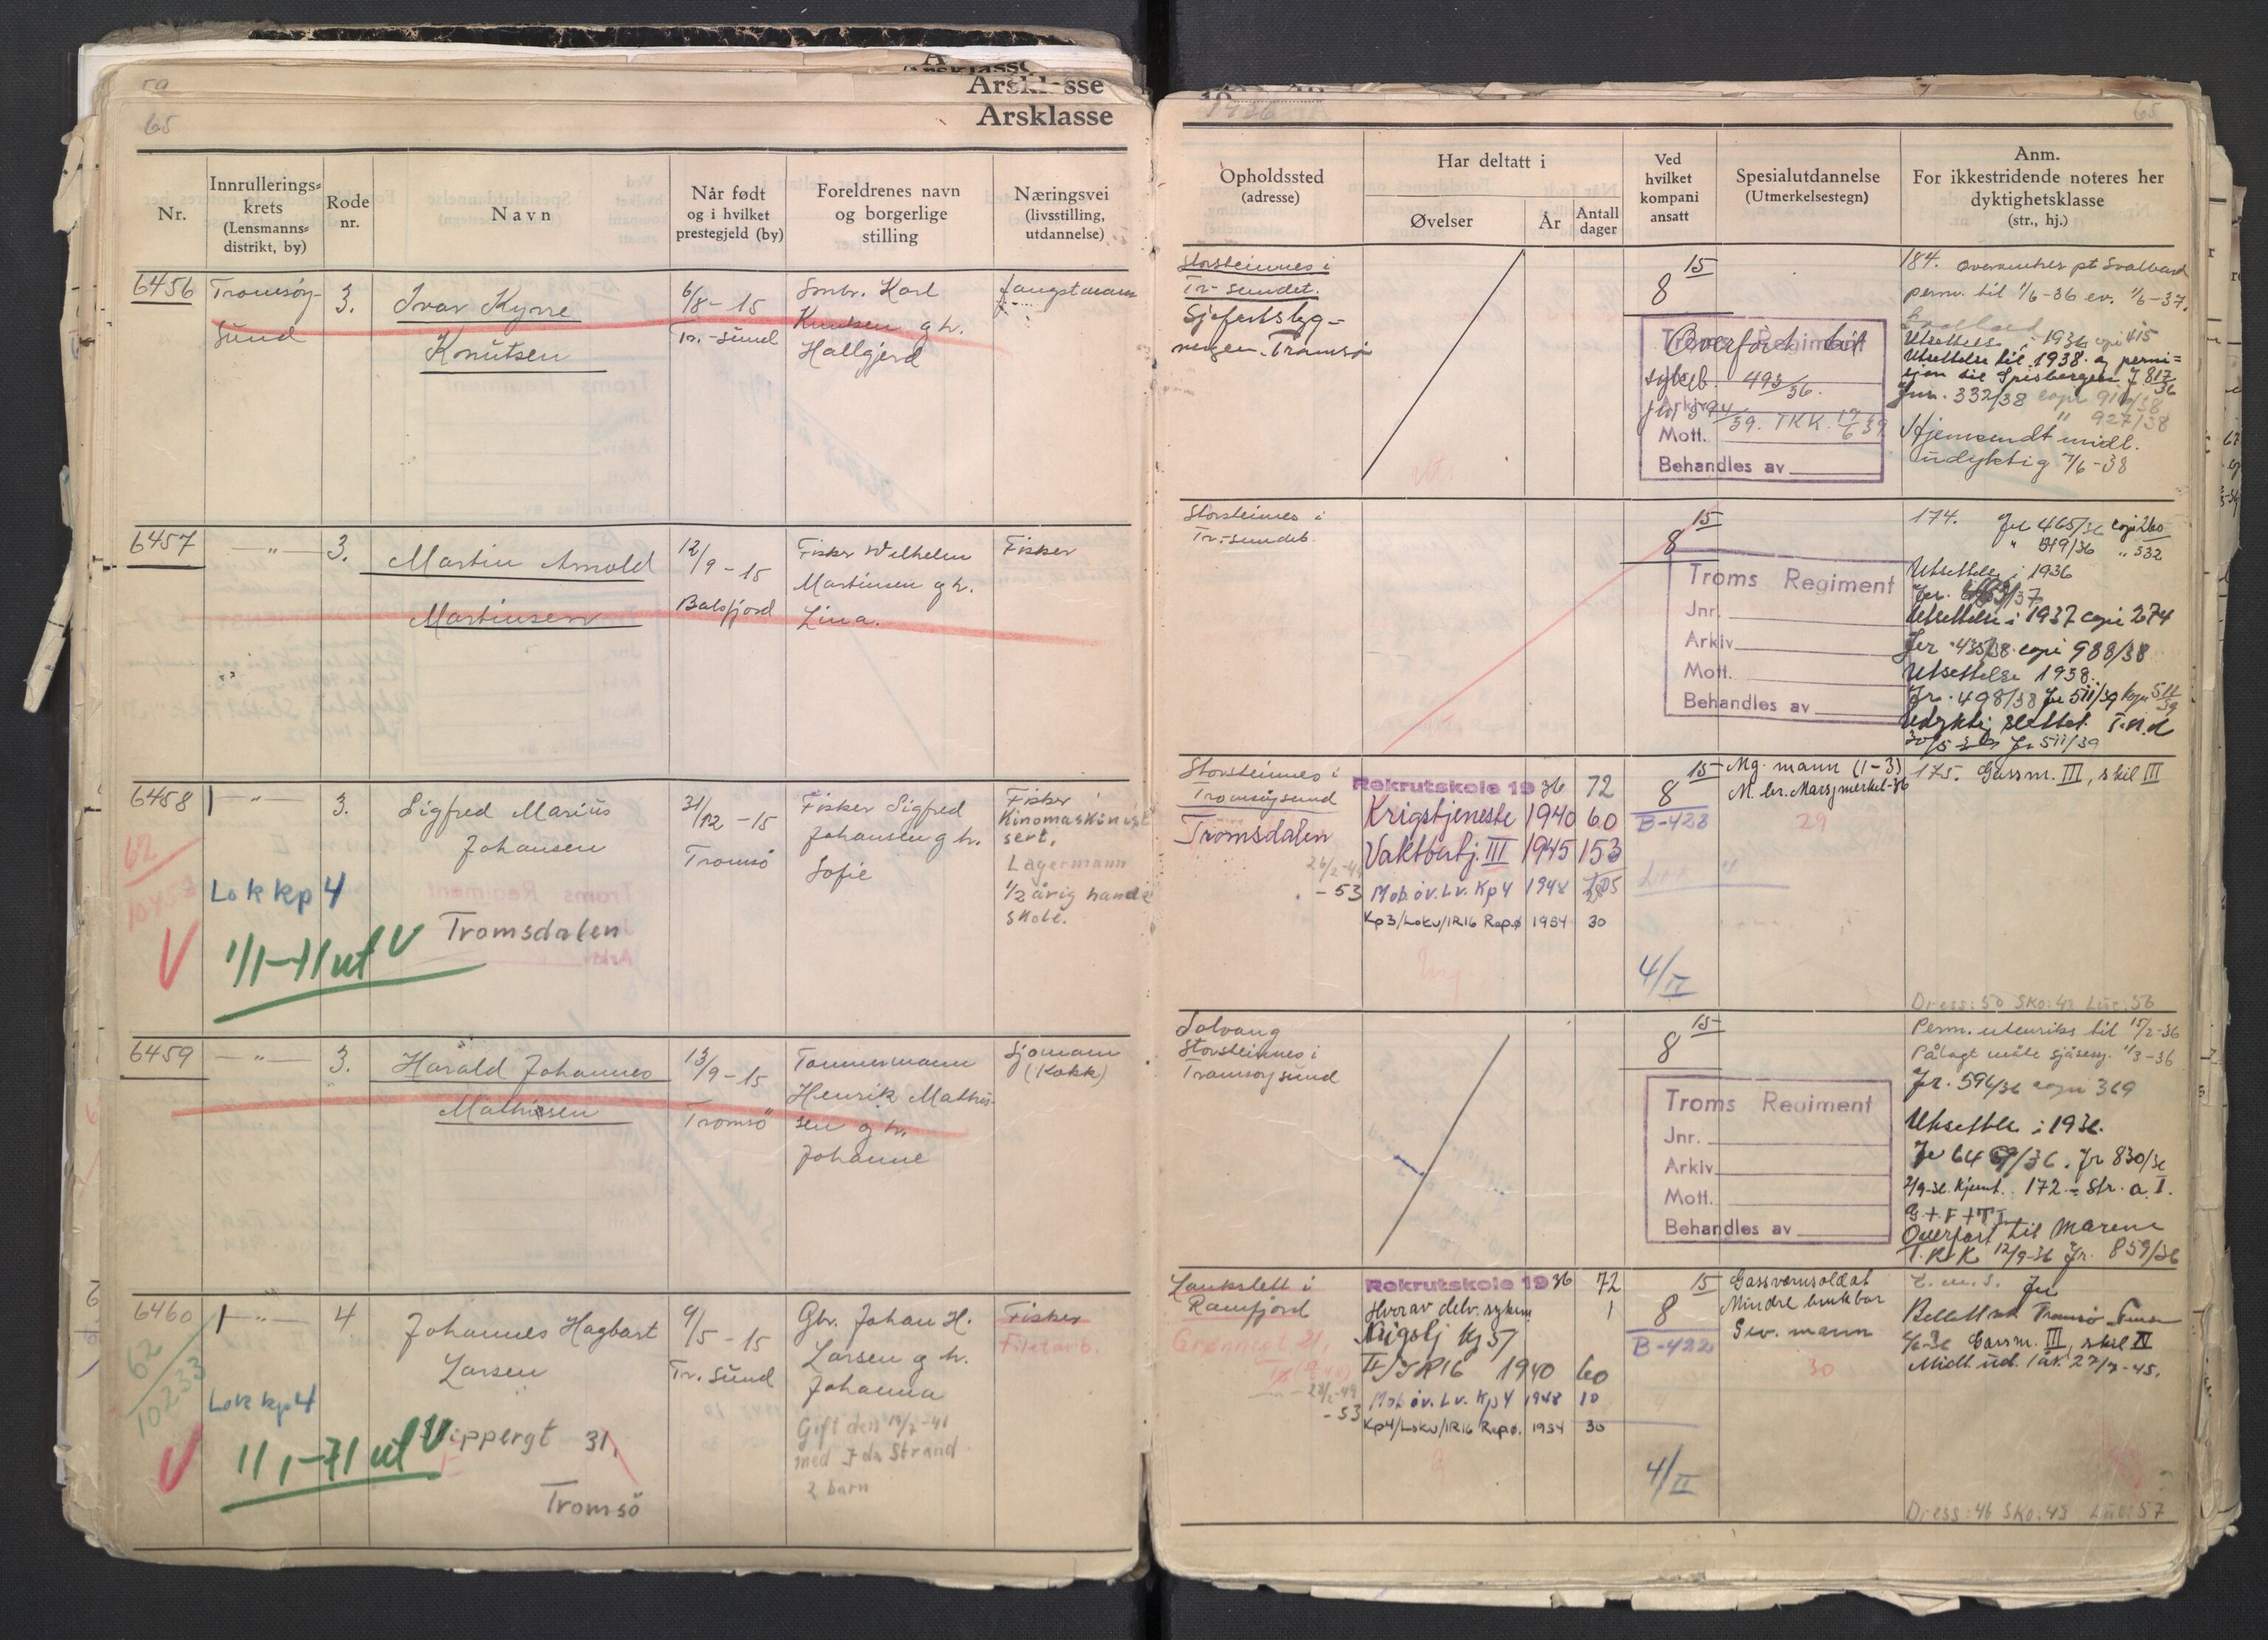 59
65
Arsklasse
Arsklasse
Nr.
Innrullerings=
krets
(Lensmanns=
distrikt, by)
Rode
nr.
Navn
Når født
og i hvilket
prestegjeld (by)
Foreldrenes navn
og borgerlige
stilling
Næringsvei
(livsstilling,
utdannelse)
6456
Tromsöy-
sund
3.
Ivar Kyrre
Knutsen
6/8-15
Tr.-sund
Smbr. Karl
Knutsen g h.
Hallgjerd
fangstmann
6457
—"—
3.
Martin Arnold
Martinsen
12/9-15
Balsfjord
Fisker Wilhelm
Martinsen g h.
Lina.
Fisker
6458
—"—
3.
Sigfred Marius
Johansen
31/12-15
Tromsö
Fisker Sigfred
Johansen g h.
Sofie
Fisker
Kinomaskinist
sert.
Lagermann
1/2 årig handels
skole.
62
Lok kp 4
V
1/1-71 ut V
Tromsdalen
6459
—"—
3.
Harald Johannes
Mathisen
13/9-15
Tromsö
Tömmermann
Henrik Mathis-
sen g h.
Johanne
Sjömann
(Kokk)
6460
—"—
4
Johannes Hagbart
Larsen
9/5-15
Tr. sund
Gbr. Johan H.
Larsen g h.
Johanna
Gift den 19/7-41
med Ida Strand
2 barn
Fisker
Filetarb.
62
10233
Lok kp 4
V
1/1-71 ut V
Skippergt 31,
Tromsö
1936
65
Opholdssted
(adresse)
Har deltatt i
Øvelser
År
Antall
dager
Ved
hvilket
kompani
ansatt
Spesialutdannelse
(Utmerkelsestegn)
Anm.
For ikkestridende noteres her
dyktighetsklasse
(str., hj.)
Storsteinnes i
Tr-sundet.
Sjöfartsbyg-
ningen. Tromsö
15
8
Troms Regiment
Overfört til
493/36.
Arkiv
/39. TKK.
Mott.
Behandles av
184. Overvintrer pt Svalbard
perm. til 1/6-36 ev. 1/6-37.
Utsettelse i 1936 copi 415
Utsettelse til 1938. og permi=
sjon til Spisbergen J 817/36
Jnr. 332/38 copi
" 927/38
Hjemsendt midl.
udyktig 7/6-38
Storsteinnes i
Tr.-sundet.
15
8
Troms Regiment
Jnr.
Arkiv
Mott.
Behandles av
174. Jr 465/36 copi 260
" 519/36 " 332
Utsettelse i 1936
Utsettelse i 1937 copi 274
Jr. 435/38 copi 988/38
Utsettelse 1938.
Jr. 498/38 Jr 511/39 kopi 511/39
Udyktig slettet T.n.d
30/5 Jr 511/39
Storsteinnes i
Tromsöysund
Tromsdalen
26/2-49
-53
Rekrutskole 1936 72
Krigstjeneste 1940 60
Vaktbatj. III 1945 153
Mob.öv. Lv. Kp 4 1948
Kp3/Lokv/IR16 Rep.ø 1954 30
15
8
B-428
4/II
Mg. mann (1-3)
M. br. Marsjmerket-36
29
175. Gassm. III, skil III
Dress: 50 Sko: 42 Lue: 56
Solvang
Storsteinnes i
Tromsöysund
15
8
Troms Regiment
Jnr.
Arkiv
Mott.
Behandles av
Perm. utenriks til 15/2-36
Pålagt möte sjösesj. 11/3-36
Jr. 596/36 copi 369
Utsettelse i 1936.
Jr 6469/36. Jr 830/36
2/9-36. Kjent. 172 - Str. a. I.
G + F + T I
Overfört til Marine
T.K.K 12/9-36 Jr. 859/36
Lankslett i
Ramfjord
Grønnegt. 21,
-53
Rekrutskole 1936 72
Hvorav delv. sykm. 1
Krigstj Kj 57
II/IR16 1940 60
Mob.öv. Lv. Kp 4 1948 10
Kp4/Lokv/IR16 Rep.ø. 1954 30
15
8
B-422
4/II
Gassvernsoldat
Mindre brukbar
Gev. mann
30
Gassm. III, skil IV
Midl. ud. 1 år. 27/7-45.
Dress: 46 Sko: 43 Lue: 57